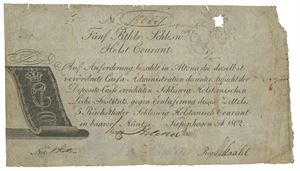 No.
Fünf Rthlr. Schlesw.
Holst. Courant.
Auf Anforderung bezahlt in Altona die daselbst
verordnete Cassa-Administration des unter Aufsicht der
Deposito-Casse errichteten Schleswig Holsteinischen
Leihe-Instituts, gegen Einlieferung dieses Zettels
5 Reichsthaler Schleswig Holsteinisch Courant
in baarer Münze. Kopenhagen Ao 1802.